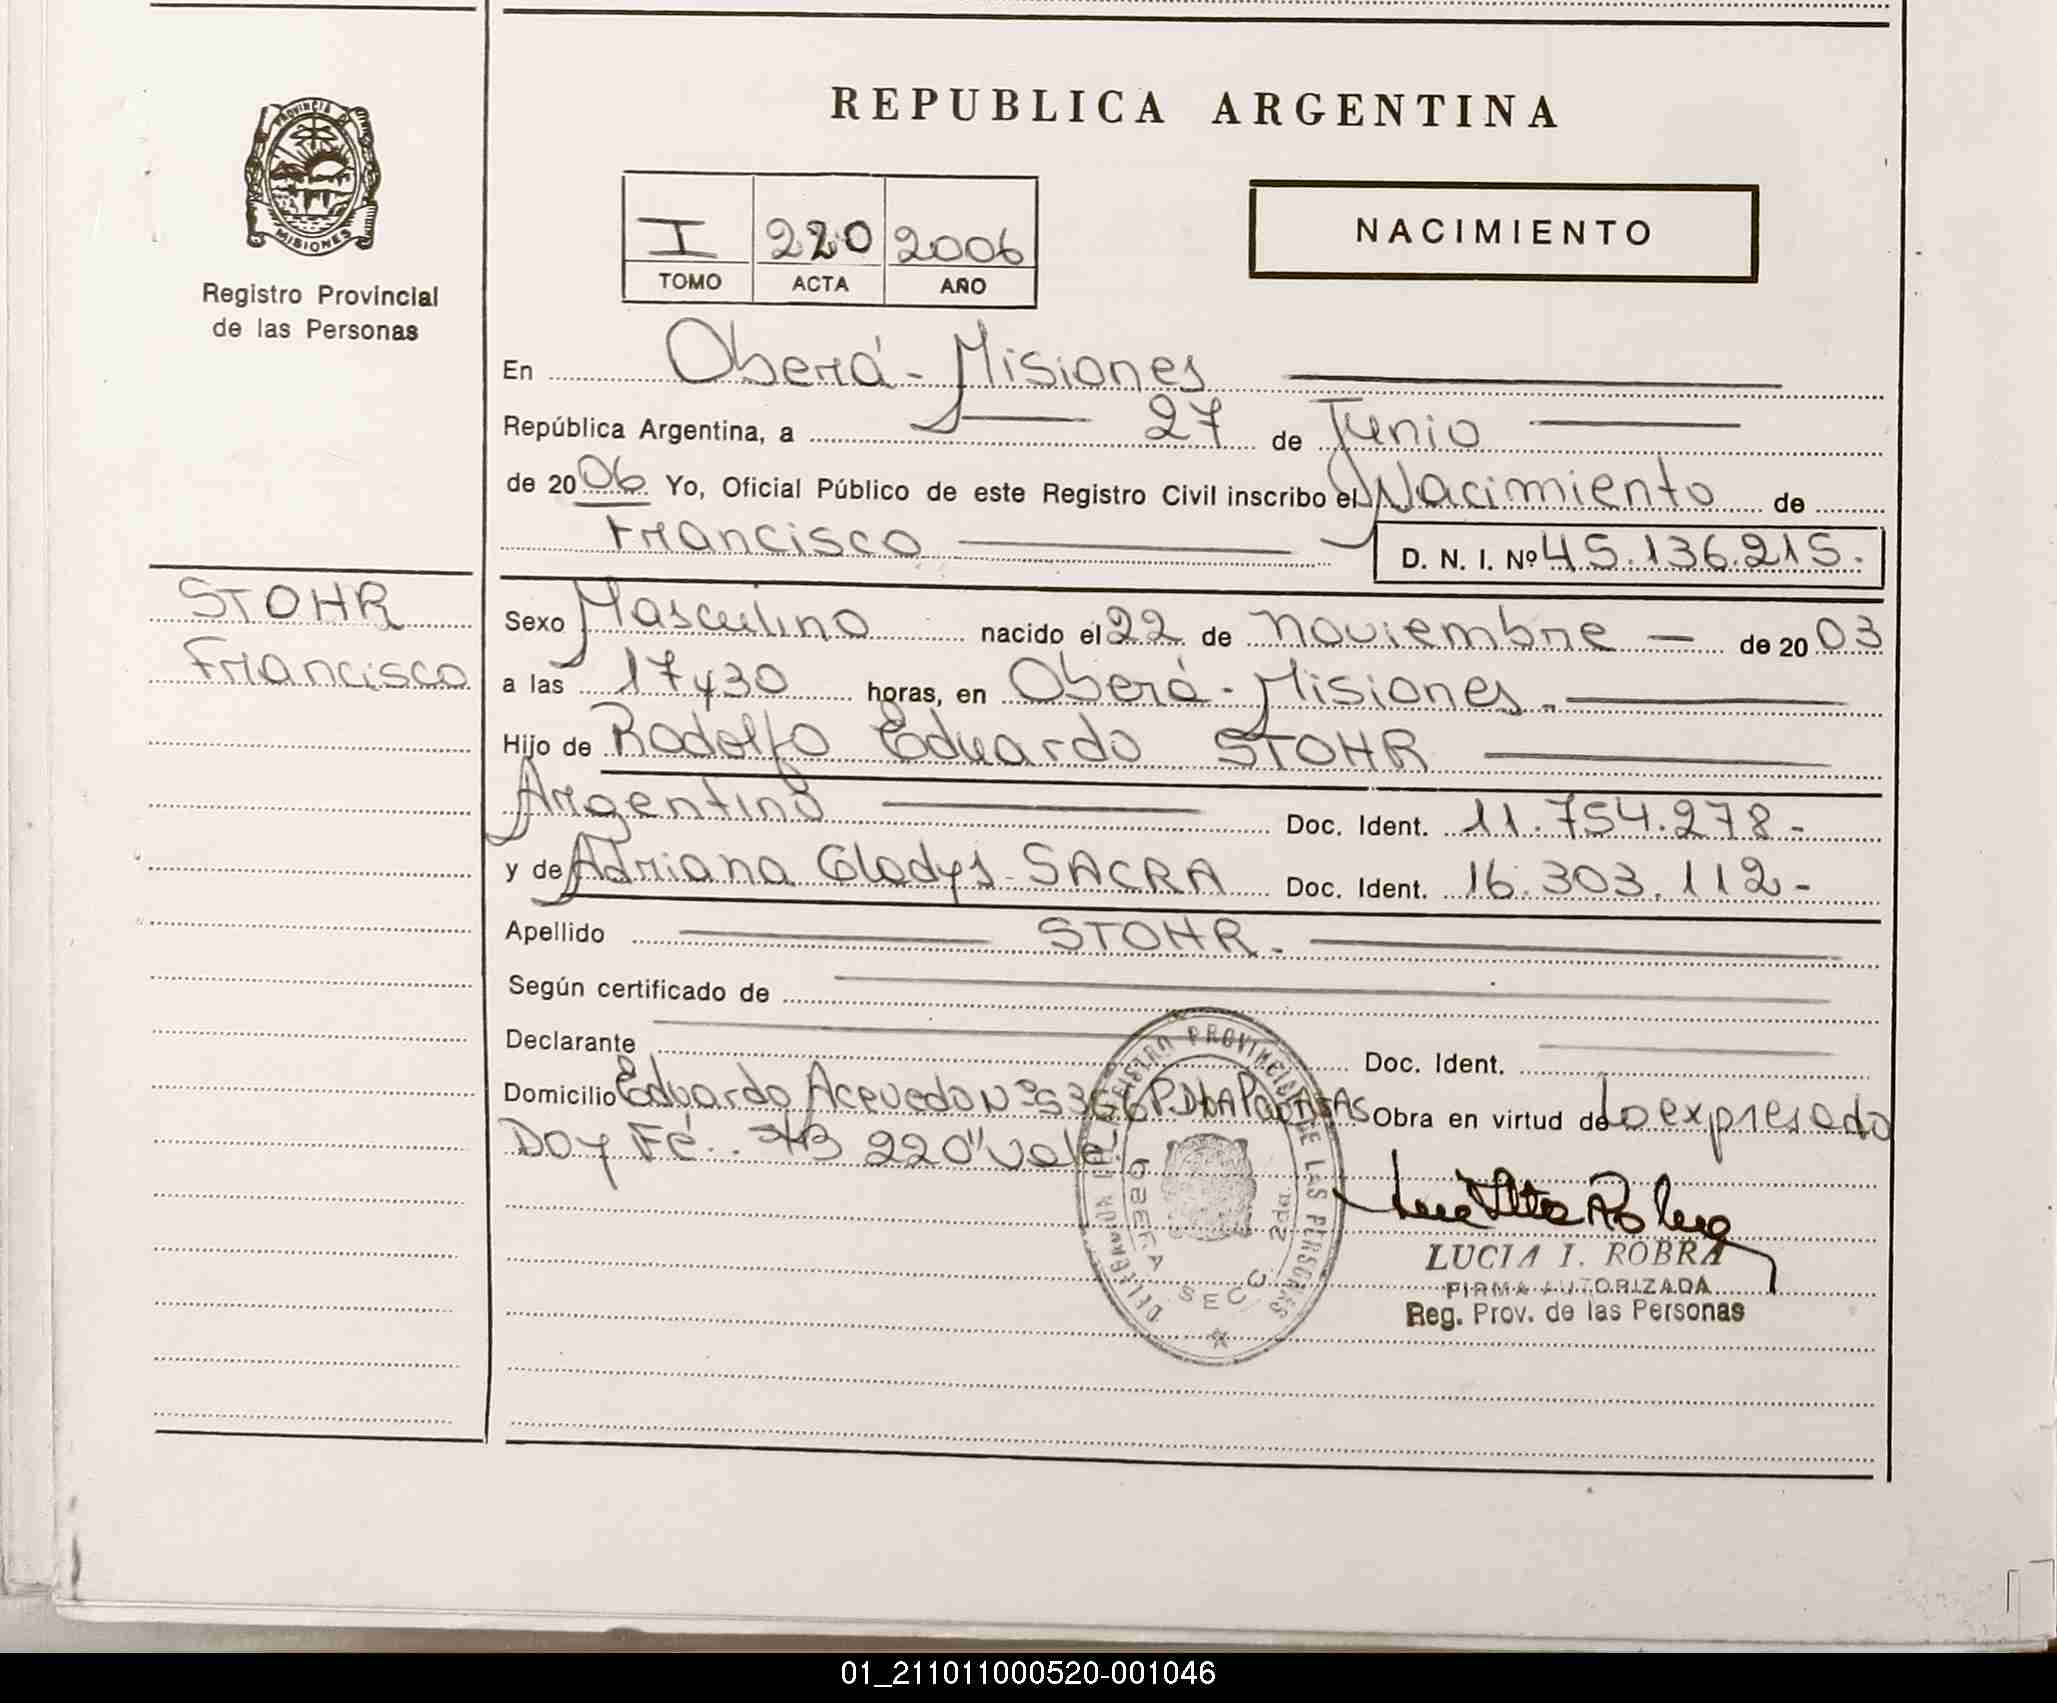 REPUBLICA ARGENTINA
PROVINCIA DE
MISIONES
Registro Provincial
de las Personas
I 220 2006
TOMO ACTA AÑO
NACIMIENTO
En Oberá - Misiones
República Argentina, a 27 de Junio
de 2006 Yo, Oficial Público de este Registro Civil inscribo el Nacimiento de
Francisco D. N. I. Nº 45.136.215.
STOHR
Francisco
Sexo Masculino nacido el 22 de noviembre de 2003
a las 17y30 horas, en Oberá - Misiones.
Hijo de Rodolfo Eduardo STOHR
Argentino Doc. Ident. 11.754.278-
y de Adriana Gladys SACRA Doc. Ident. 16.303.112-
Apellido STOHR.
Según certificado de
Declarante Doc. Ident.
Domicilio Eduardo Acevedo Nº 5366 Obra en virtud de Lo expresado
Doy Fé. 220" Vale
DELEGACION DEL REGISTRO PROVINCIAL DE LAS PERSONAS
OBERA SECC. 2da
LUCIA I. ROBRA
FIRMA AUTORIZADA
Reg. Prov. de las Personas
01_211011000520-001046